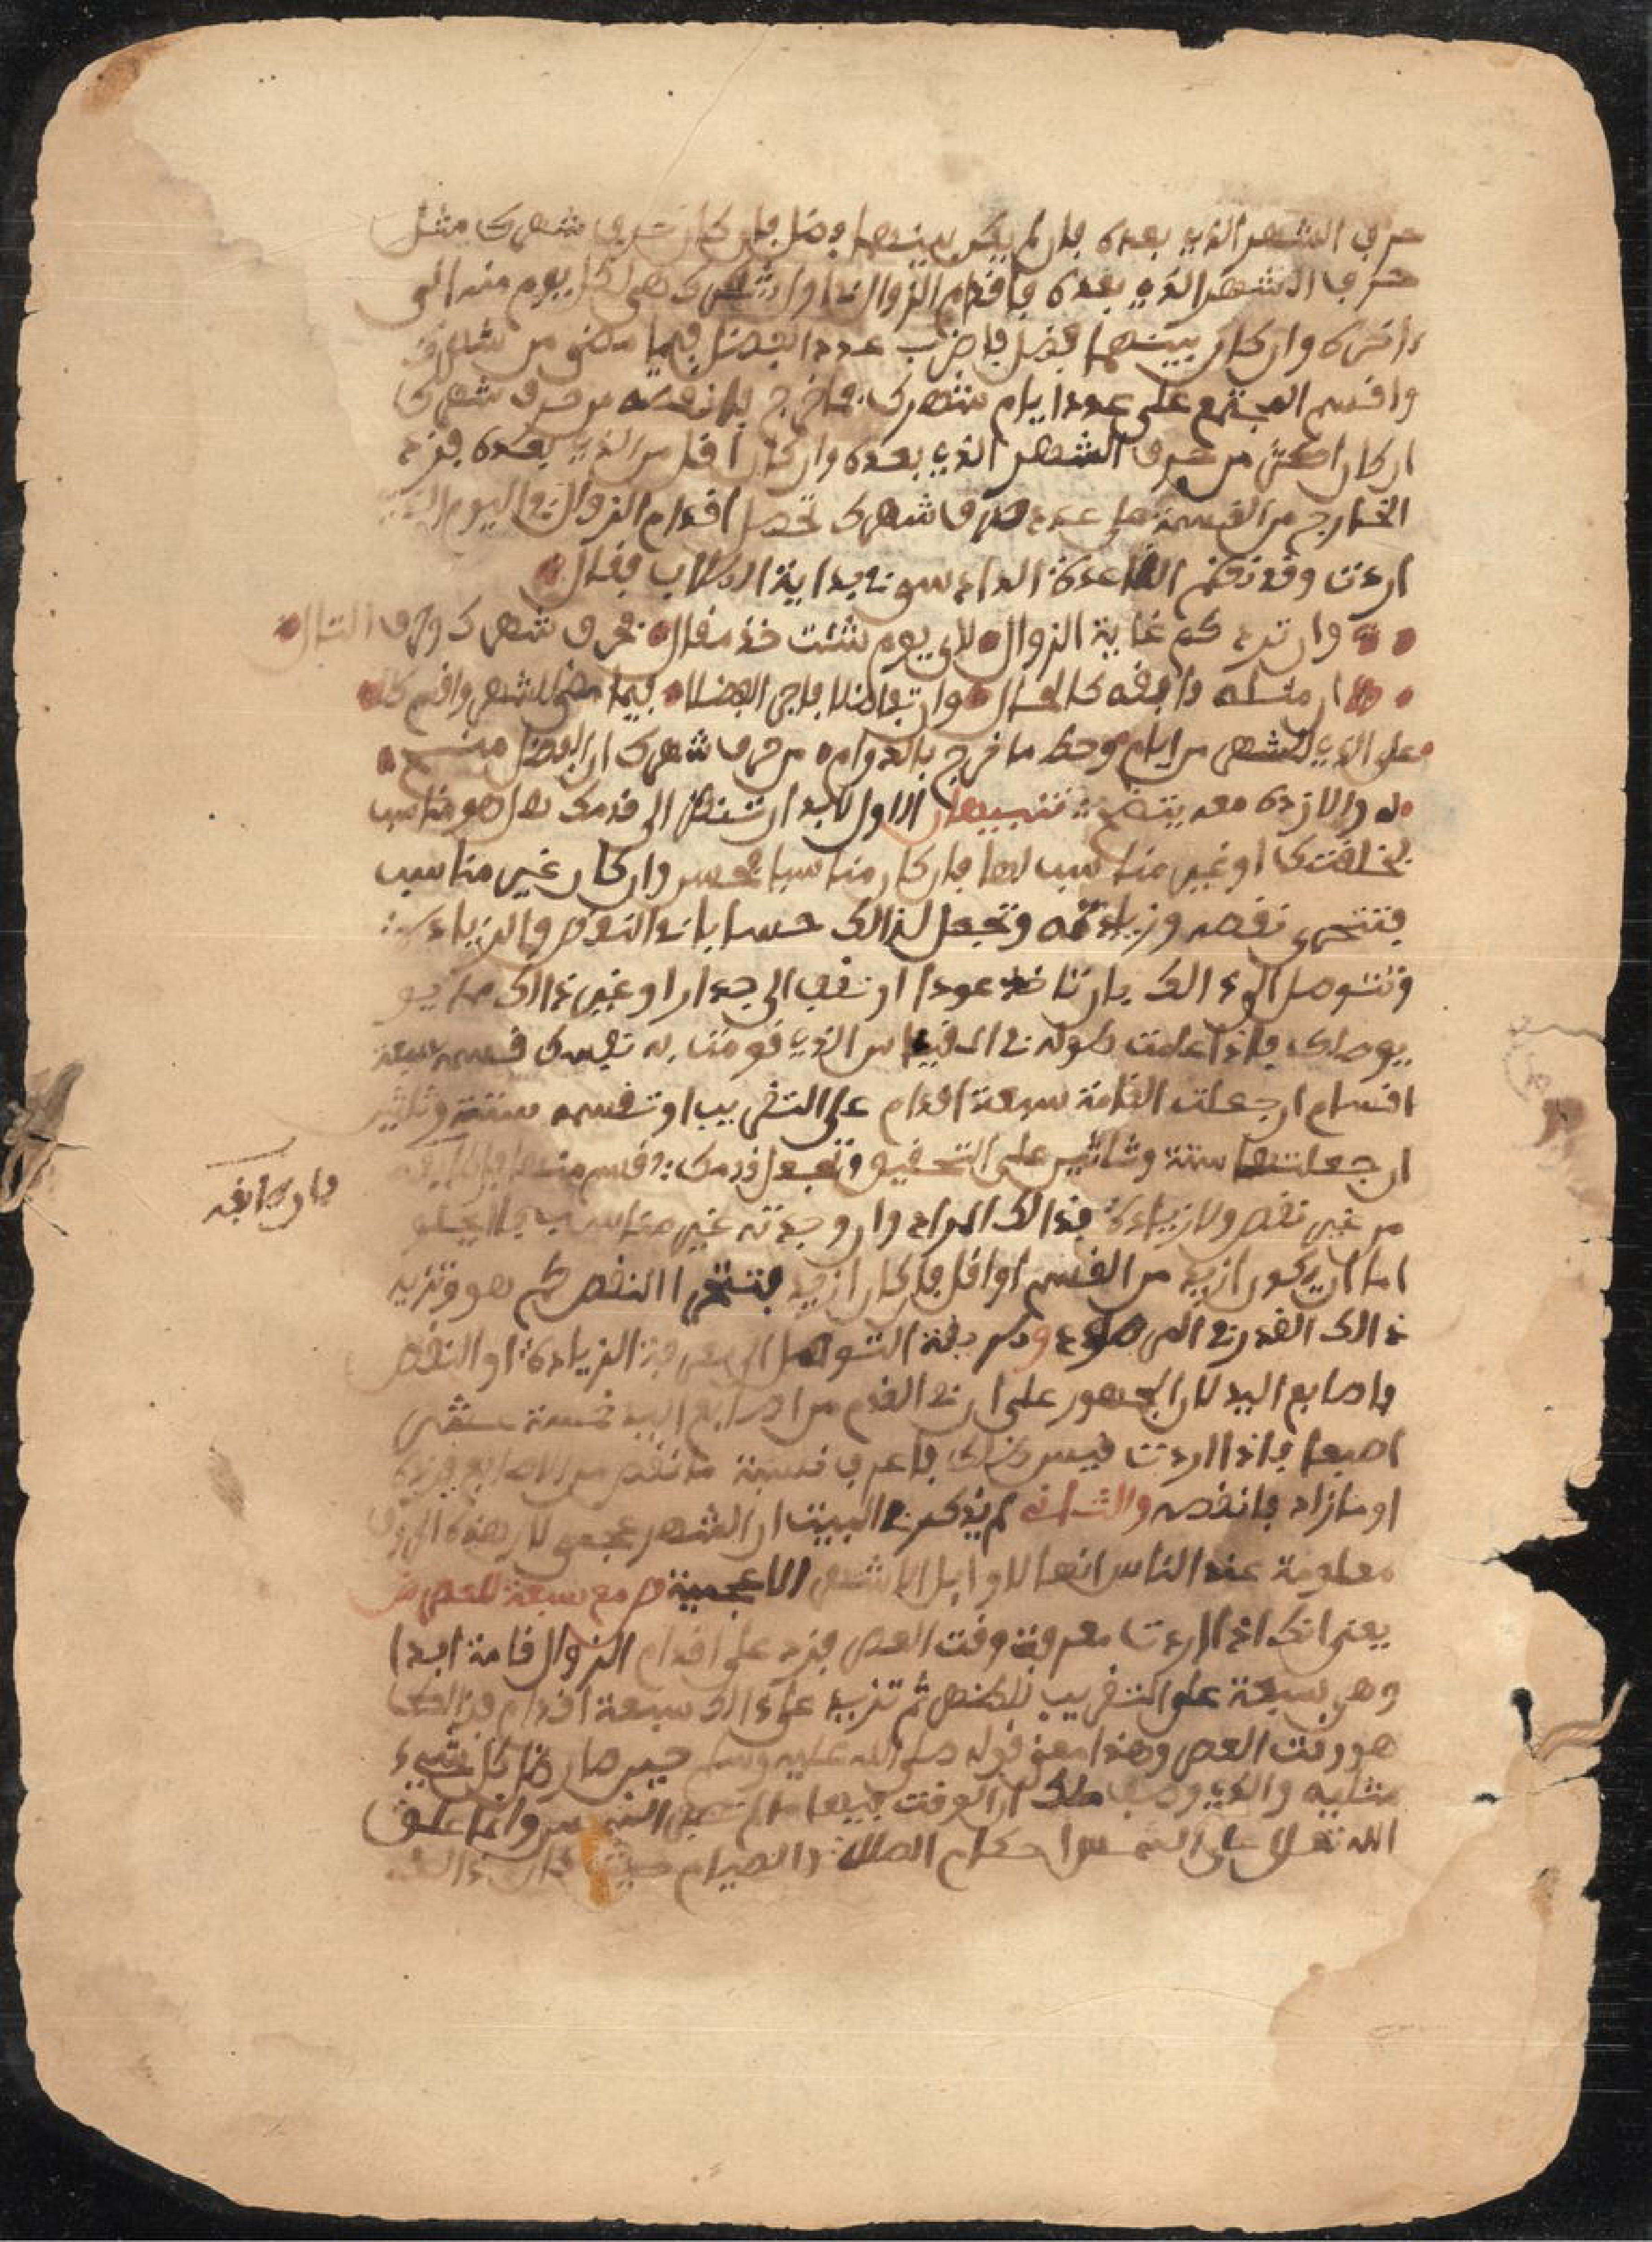 حرف الشهر الذي بعده فان لم يكن بينهما فضل فان كان حرف شهرك مثل
حرف الشهر الذي بعده فاقدام الزوال في اول شهرك هي لكل يوم منه الى
ءاخره وان كان بينهما فضل فاضرب عدد الفضل فيما مضى من شهرك
واقسم المجتمع على عدد ايام شهرك فما خرج فانقصه من حرف شهرك
ان كان اكثر من حرف الشهر الذي بعده وان كان اقل من الذي بعده فزد
الخارج من القسمة على عدد حرف شهرك تحصل اقدام الزوال في اليوم الذي
اردت وقد نظم القاعدة الدادسي في بداية الطلاب فقال
وان ترد كم غاية الزوال لاي يوم شئت خذ مقال فحرف شهرك وحرف التال
ان مثله دابقه كالحال وان تفاضلا فاجر الفضلا فيما مضى للشهر واقسم كلا
على الذي للشهر من ايام وحط ما خرج بالدوام من حرف شهرك ان الفضل منسم
له والا زده معه يتضح تنبيهان الاول لا بد ان تنظر الى قدمك هل هو مناسب
لخلقتك او غير مناسب لها فان كان مناسبا فحسن وان كان غير مناسب
فتتحرى نقصه وزيادته وتجعل لذالك حسابا في النقص والزيادة
وتتوصل الى ذالك بان تاخذ عودا او تقف الى جدار او غير ذالك مما يو
يوصلك فاذا علمت طوله في القياس الذي قومت به نفسك قسمه سبعة
اقسام ان جعلت القامة سبعة اقدام على التقريب او تقسمه ستة وثلثين
ان جعلتها ستة وثلثين على التحقيق وتجعل قدمك في قسم منها
فان وافقه
من غير نقص ولا زيادة فذالك المراد وان وجدته غير مناسب فلا يخلو
اما ان يكون ازيد من القسم او اقل فان كان ازيد فتتحرا النقص كم هو وتزيد
ذالك القدر في المرصود وطريقة التوصل الى معرفة الزيادة او النقص
واصابع اليد لان الجمهور على ان في القدم من اصابع اليد خمسة عشر
اصبعا فاذا اردت قيس ظلك فاعرف نسبة ما نقص من الاصابع فزده
او ما زاد فانقصه والثاني لم يذكر في البيت ان الشهر عجمي لان هذه الحروف
معلومة عند الناس انها لاوايل الاشهر الاعجمية ص مع سبعة للعصر ش
يعني انك اذا اردت معرفة وقت العصر فزد على اقدام الزوال قامة ابدا
وهي سبعة على التقريب ثم تزيد على ذالك سبعة اقدام فذالك
هو وقت العصر وهذا معنى قوله صلى الله عليه وسلم حين صار ظل كل شيء
مثليه والذي وصف ملك ان الوقت فيها ما لم تصفر الشمس وانما علق
الله تعلى على الشمس احكام الصلاة والصيام حيث كان ذالك